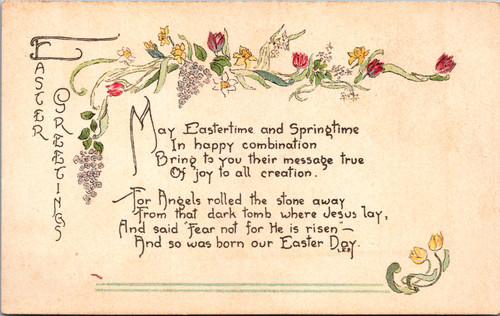 Easter
Greetings
May Eastertime and Springtime
In happy combination
Bring to you their message true
Of joy to all creation.
For Angels rolled the stone away
From that dark tomb where Jesus lay,
And said "Fear not for He is risen"—
And so was born our Easter Day.